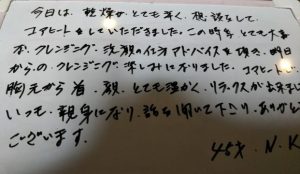 今日は、乾燥がとても辛く、相談をして
コアヒートをしていただきました。この時季とても大事
な、クレンジング、洗顔のイロイロアドバイスを頂き、明日
からの、クレンジング、楽しみになりました。コアヒートは、
胸元から首、顔、とても温かく、リラックスが出来ました。
いつも、親身になり、話を聞いて下さり、ありがとう
ございます。
45才 N.K